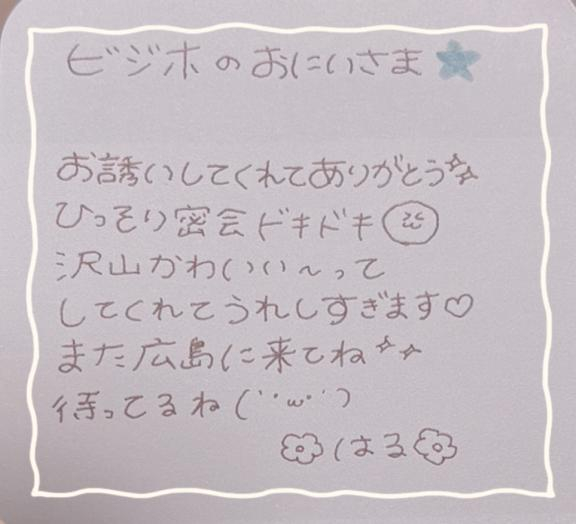 ビジホのおにいさま
お誘いしてくれてありがとう
ひっそり密会ドキドキ
沢山かわいい〜って
してくれてうれしすぎます♡
また広島に来てね
待ってるね(˙˙ω˙˙)
はる